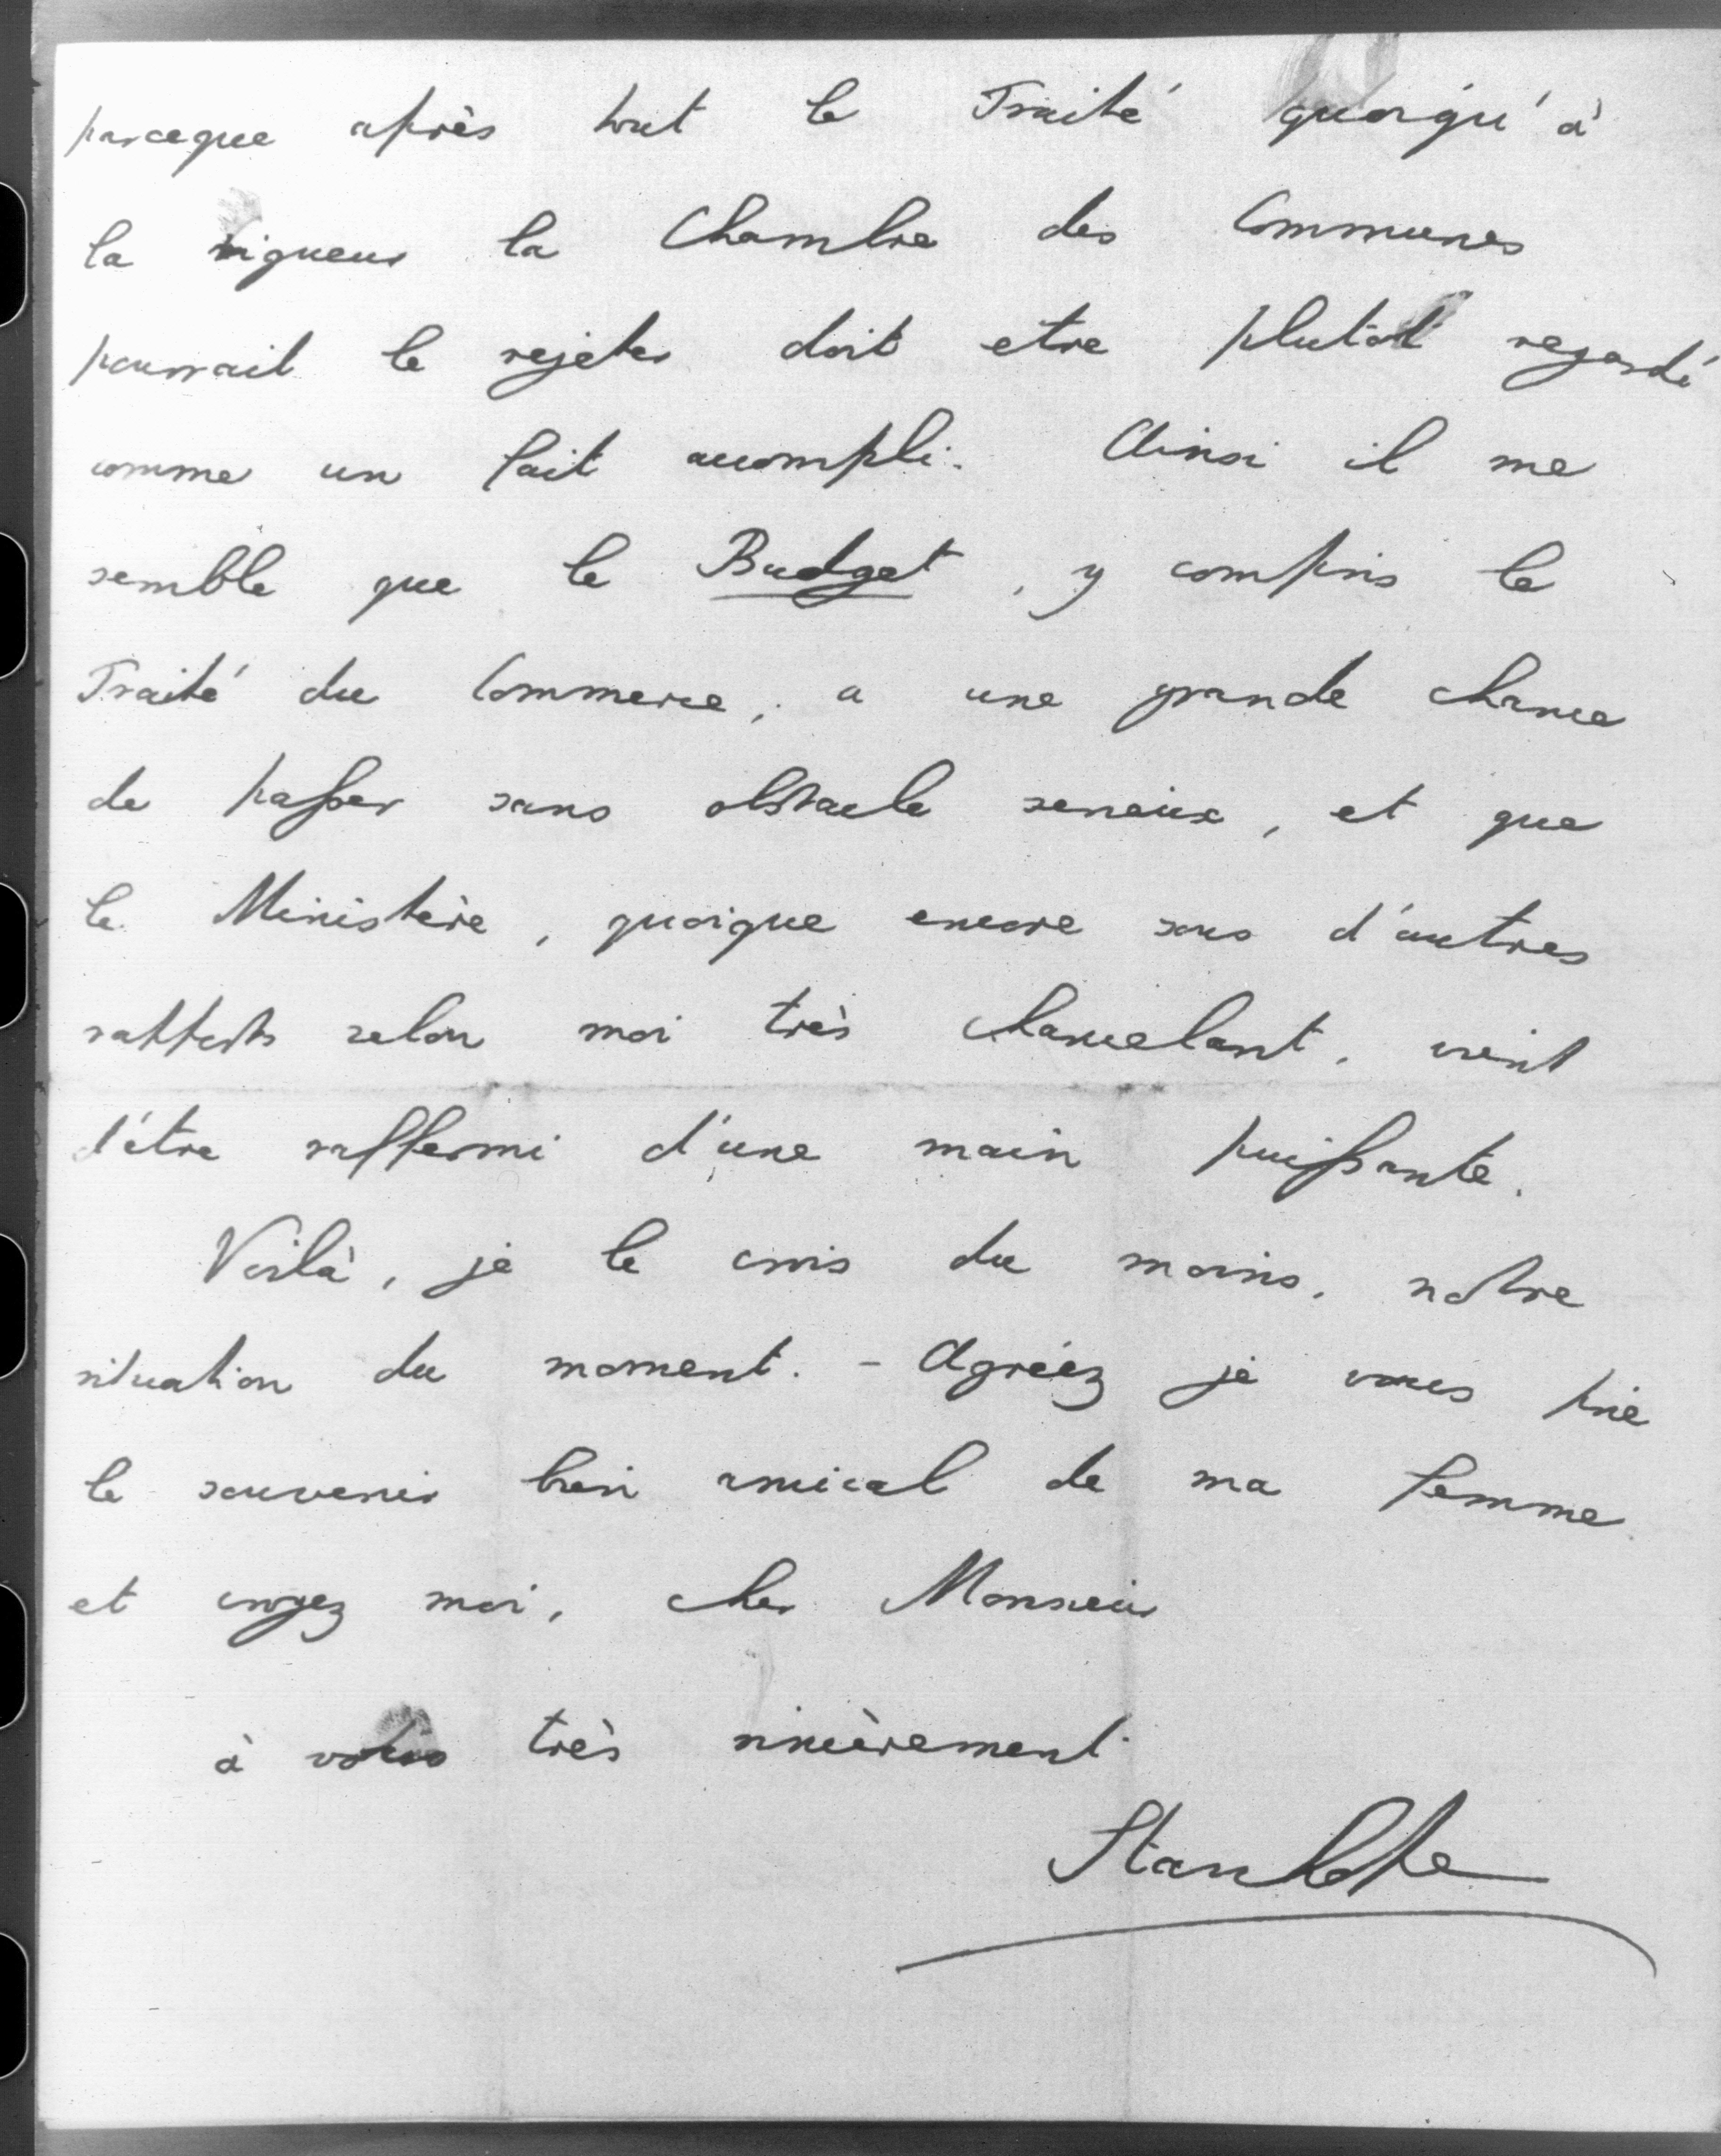 parceque après tout le Traité quoiqu'à
la rigueur la Chambre des Communes
pourrait le rejeter doit etre plutôt regardé
comme un fait accompli. Ainsi il me
semble que le Budget, y compris le
Traité du Commerce, a une grande chance
de passer sans obstacle serieux, et que
le Ministère, quoique encore sous d'autres
rapports selon moi très chancelant, vient
d'être raffermi d'une main puissante.
Voilà, je le crois du moins, notre
situation du moment. - Agréez je vous prie
le souvenir bien amical de ma femme
et croyez moi, cher Monsieur
à vous très sincèrement